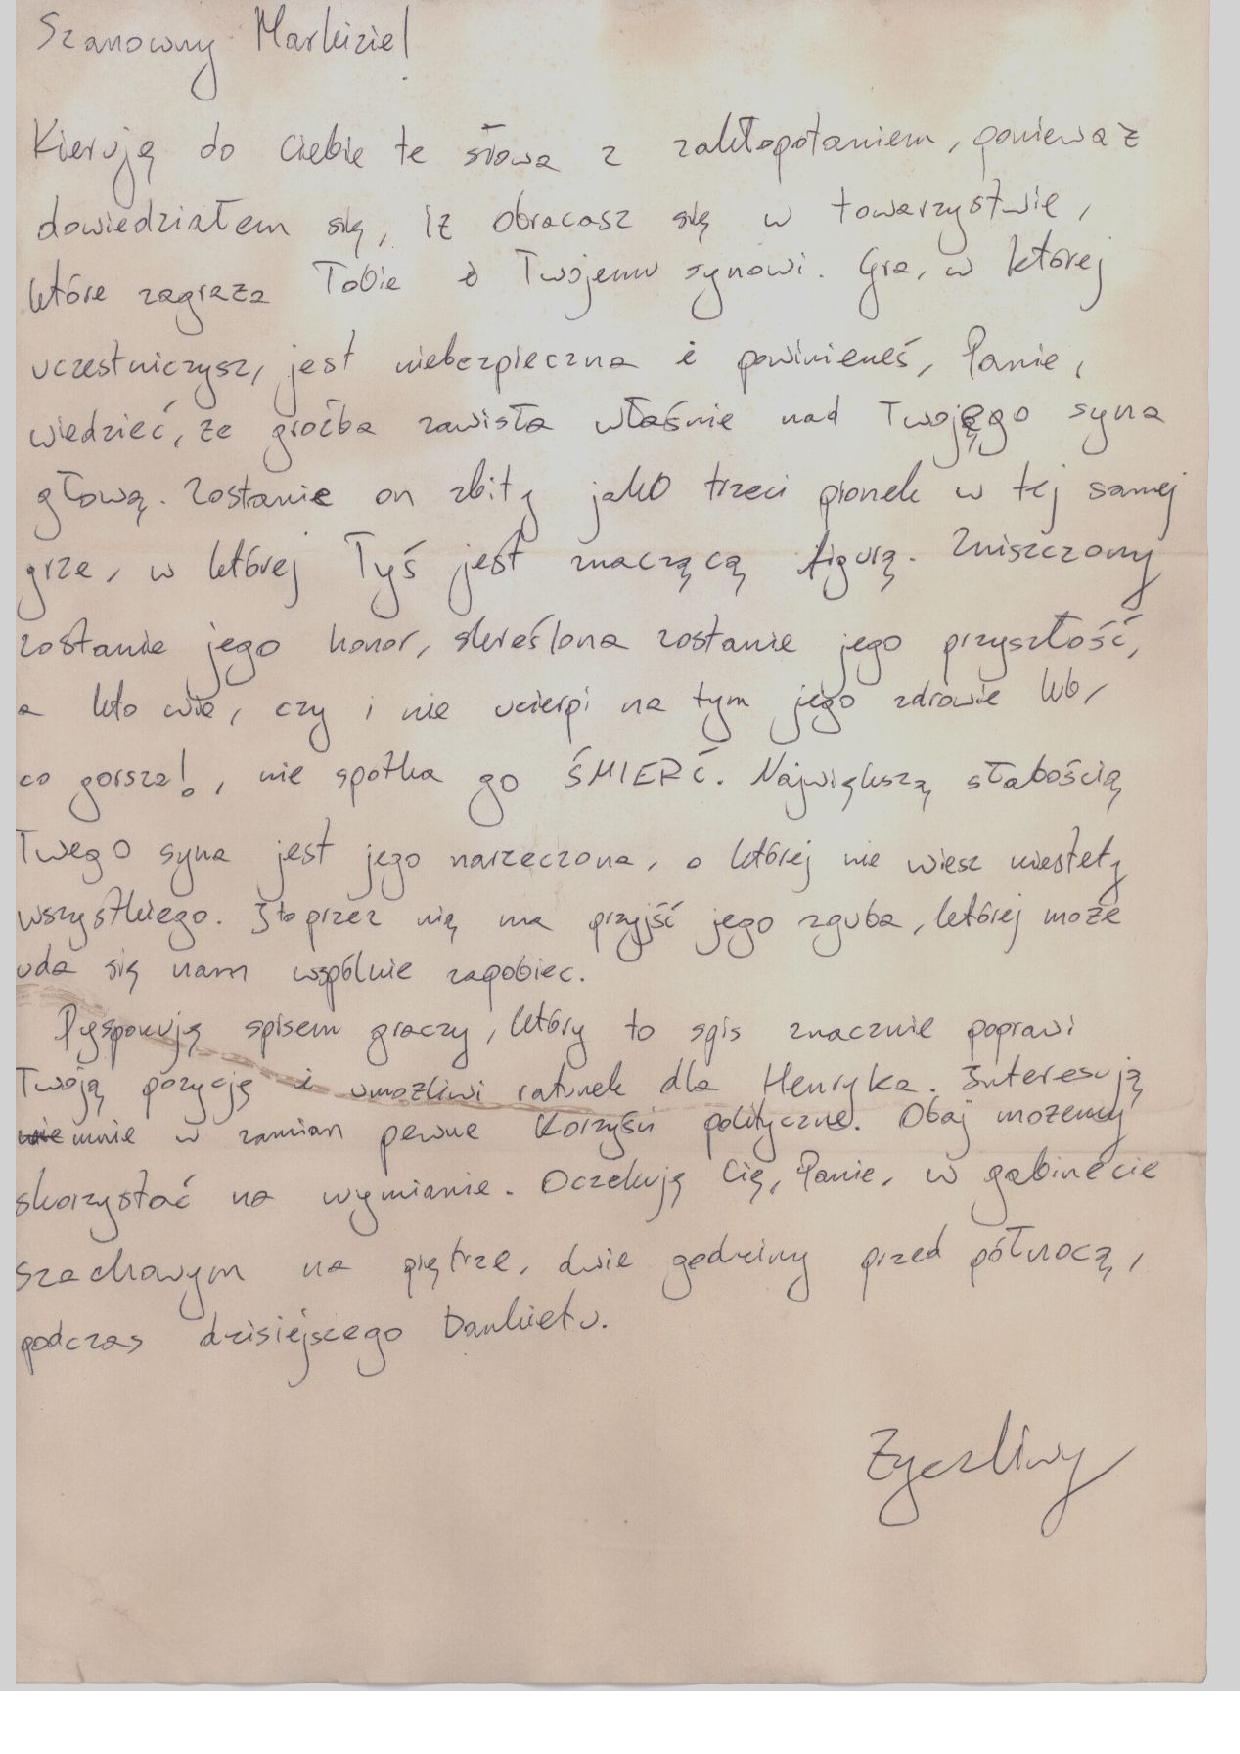 Szanowny Markizie!
Kieruję do Ciebie te słowa z zakłopotaniem, ponieważ
dowiedziałem się, iż obracasz się w towarzystwie,
które zagraża Tobie i Twojemu synowi. Gra, w której
uczestniczysz, jest niebezpieczna i powinieneś, Panie,
wiedzieć, że groźba zawisła właśnie nad Twojego syna
głową. Zostanie on zbity jako trzeci pionek w tej samej
grze, w której Tyś jest znaczącą figurą. Zniszczony
zostanie jego honor, skreślona zostanie jego przyszłość,
a kto wie, czy i nie ucierpi na tym jego zdrowie lub,
co gorsza!, nie spotka go ŚMIERĆ. Największą słabością
Twego syna jest jego narzeczona, o której nie wiesz niestety
wszystkiego. I to przez nią ma przyjść jego zguba, której może
uda się nam wspólnie zapobiec.
Dysponuję spisem graczy, który to spis znacznie poprawi
Twoją pozycję i umożliwi ratunek dla Henryka. Interesują
mnie w zamian pewne korzyści polityczne. Obaj możemy
skorzystać na wymianie. Oczekuję Cię, Panie, w gabinecie
szachowym na piętrze, dwie godziny przed północą,
podczas dzisiejszego bankietu.
Życzliwy